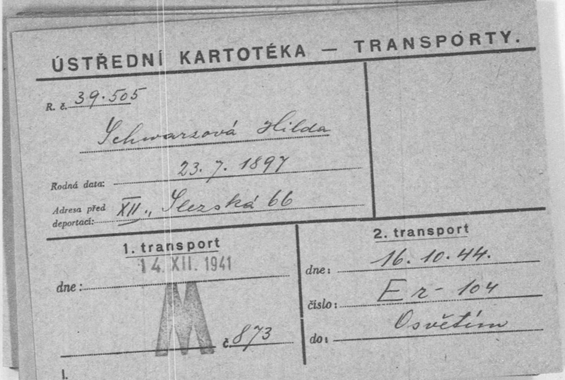 ÚSTŘEDNÍ KARTOTÉKA — TRANSPORTY.
R. č. 39.505
Schwarzová Hilda
Rodná data: 23. 7. 1897
Adresa před
deportací: XII., Slezská 66
1. transport
14. XII. 1941
dne:
M
č. 873
2. transport
dne: 16. 10. 44.
číslo: Er - 104
do: Osvětim